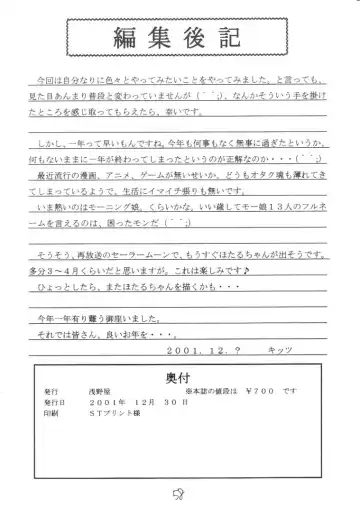 編集後記
今回は自分なりに色々とやってみたいことをやってみました。と言っても、
見た目あんまり普段と変わっていませんが(´¨;)、なんかそういう手を掛け
たところを感じ取ってもらえたら、幸いです。
しかし、一年って早いもんですね。今年も何事もなく無事に過ぎたというか。
何もないままに一年が終わってしまったというのが正解なのか・・・(´¨;)
最近流行の漫画、アニメ、ゲームが無いせいか、どうもオタク魂も薄れてき
てしまっているようで、生活にイマイチ張りも無いです。
いま熱いのはモーニング娘。くらいかな。いい歳してモー娘13人のフルネ
ームを言えるのは、困ったモンだ(´¨;)
そうそう、再放送のセーラームーンで、もうすぐほたるちゃんが出そうです。
多分3～4月くらいだと思いますが。これは楽しみです♪
ひょっとしたら、またほたるちゃんを描くかも・・・
今年一年有り難う御座いました。
それでは皆さん、良いお年を・・・。
2001.12.? キッツ
奥付
発行 浅野屋 ※本誌の値段は ￥700 です
発行日 2001年 12月 30日
印刷 STプリント様